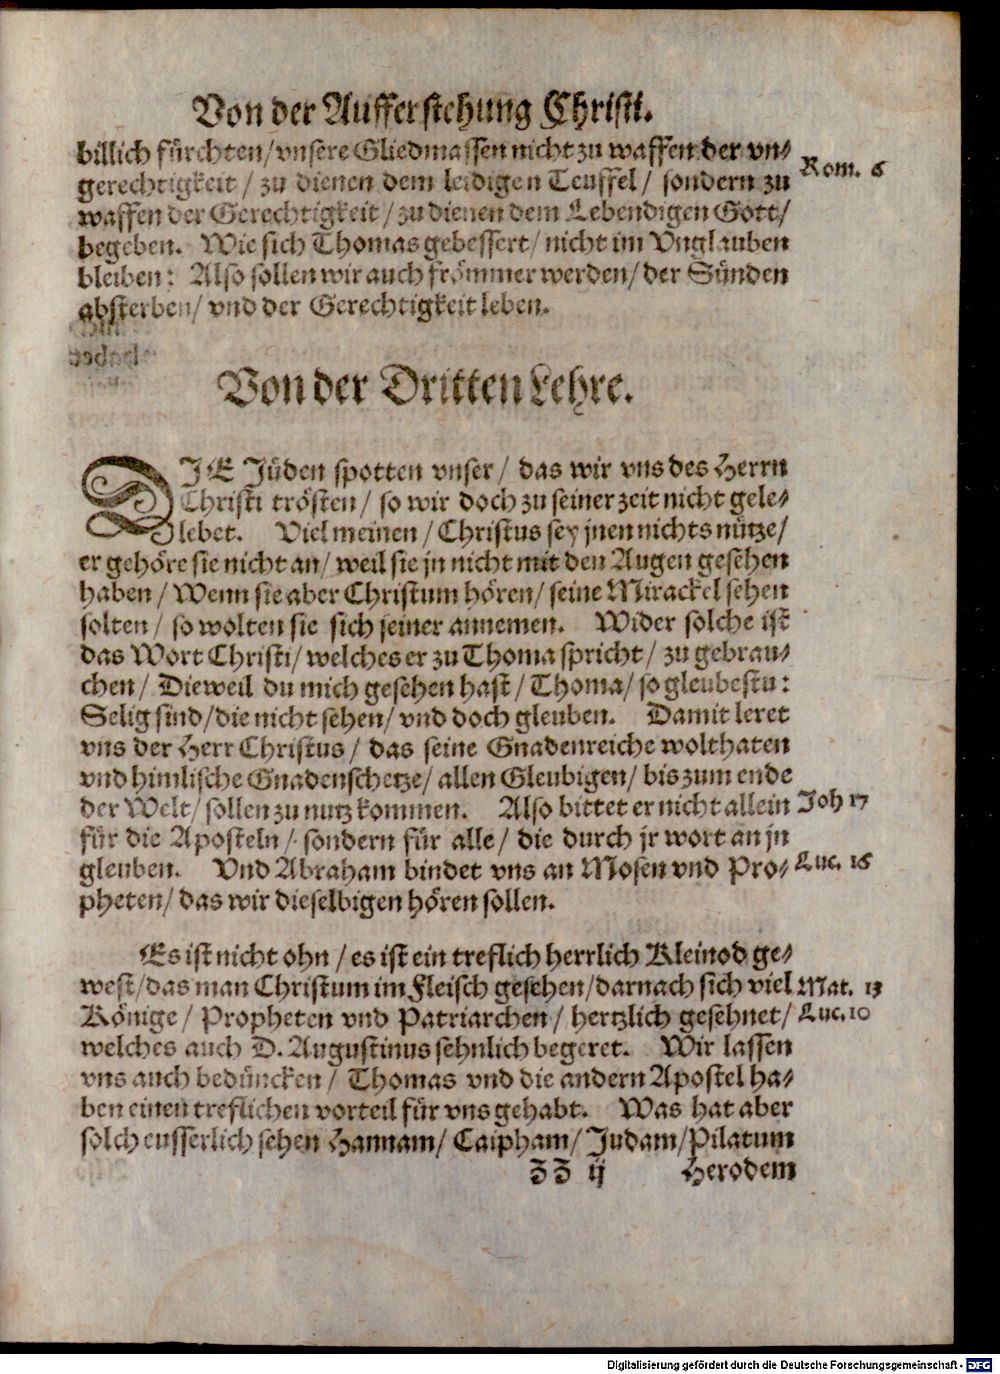 Von der Aufferstehung Christi.
billich fürchten/ vnsere Gliedmassen nicht zu waffen der vn-
Rom. 6
gerechtigkeit / zu dienen dem leidigen Teuffel / sondern zu
waffen der Gerechtigkeit / zu dienen dem Lebendigen Gott/
begeben. Wie sich Thomas gebessert/ nicht im Vnglauben
bleiben: Also sollen wir auch frömmer werden/ der Sünden
absterben/ vnd der Gerechtigkeit leben.
Von der Dritten Lehre.
DIE Jüden spotten vnser / das wir vns des Herrn
Christi trösten / so wir doch zu seiner zeit nicht gele-
lebet. Viel meinen / Christus sey jnen nichts nütze/
er gehöre sie nicht an/ weil sie jn nicht mit den Augen gesehen
haben / Wenn sie aber Christum hören/ seine Mirackel sehen
solten / so wolten sie sich seiner annemen. Wider solche ist
das Wort Christi/ welches er zu Thoma spricht / zu gebrau-
chen / Dieweil du mich gesehen hast / Thoma/ so gleubestu:
Selig sind/ die nicht sehen/ vnd doch gleuben. Damit leret
vns der Herr Christus / das seine Gnadenreiche wolthaten
vnd himlische Gnadenschetze/ allen Gleubigen/ bis zum ende
der Welt/ sollen zu nutz kommen. Also bittet er nicht allein
Joh 17
für die Aposteln / sondern für alle / die durch jr wort an jn
gleuben. Vnd Abraham bindet vns an Mosen vnd Pro-
Luc. 16
pheten/ das wir dieselbigen hören sollen.
Es ist nicht ohn / es ist ein treflich herrlich Kleinod ge-
west/ das man Christum im Fleisch gesehen/ darnach sich viel
Mat. 13
Könige / Propheten vnd Patriarchen / hertzlich gesehnet/
Luc. 10
welches auch D. Augustinus sehnlich begeret. Wir lassen
vns auch bedüncken / Thomas vnd die andern Apostel ha-
ben einen treflichen vorteil für vns gehabt. Was hat aber
solch eusserlich sehen Hannam/ Caipham/ Judam/ Pilatum
ZZ ij Herodem
Digitalisierung gefördert durch die Deutsche Forschungsgemeinschaft - DFG